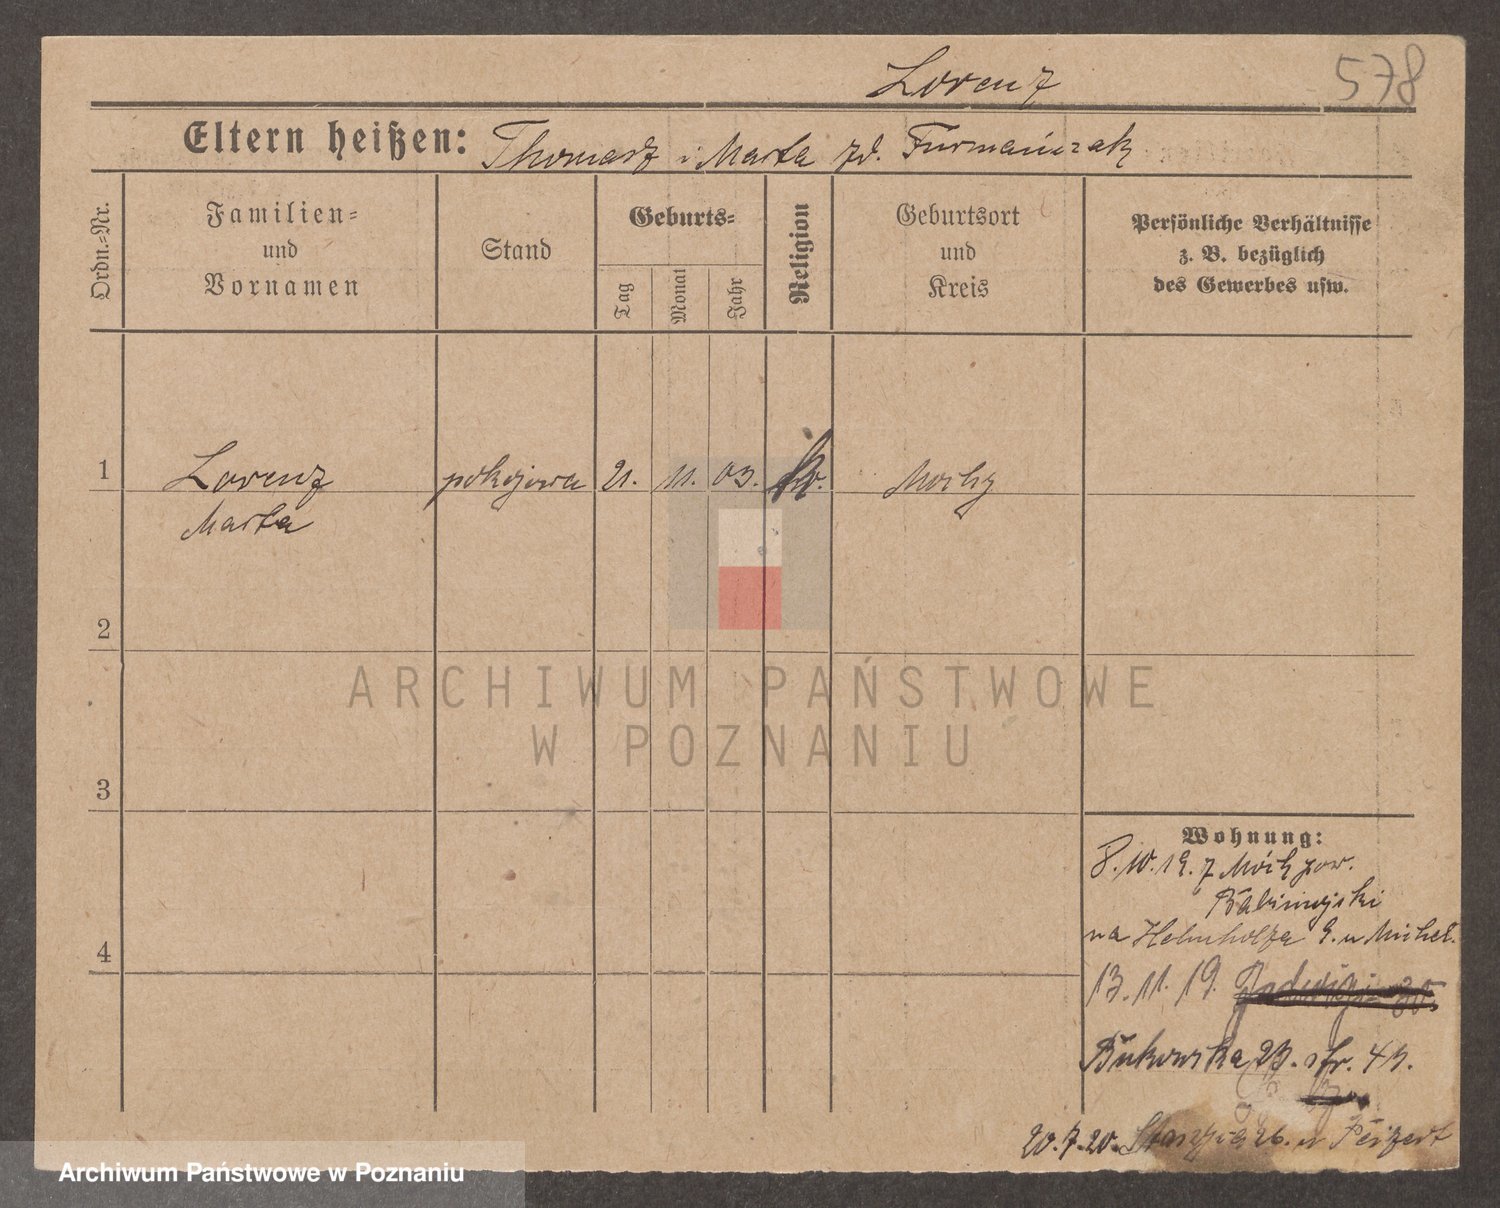 Lorenz
578
Eltern heißen: Thomasz i Marta zd. Furmańczak
Ordn.=Nr.
Familien=
und
Vornamen
Stand
Geburts=
Tag
Monat
Jahr
Religion
Geburtsort
und
Kreis
Persönliche Verhältnisse
z. B. bezüglich
des Gewerbes usw.
1 Lorenz pokojowa 21. 11. 03. Mochy
Marta
2
ARCHIWUM PAŃSTWOWE
W POZNANIU
3
Wohnung:
8.10.19. z Moch pow.
Babimojski
na Helmholza 9. u Michel.
4
13.11.19.
Bukowska 23. str. 43.
20.7.20. 26. u
Archiwum Państwowe w Poznaniu